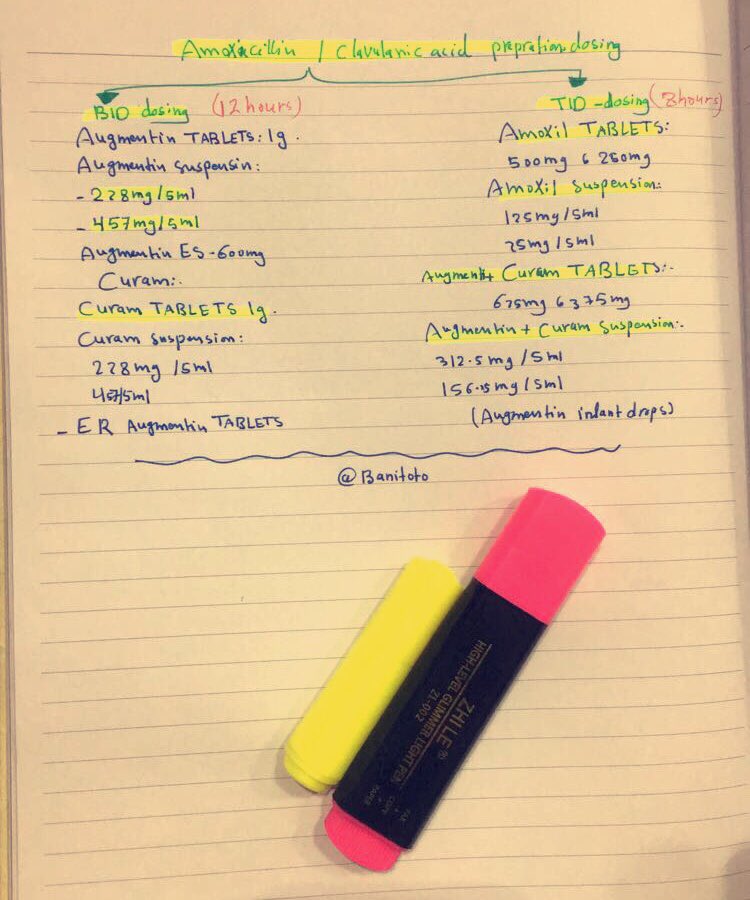 Amoxicillin / Clavulanic acid prepration dosing
BID dosing (12 hours)
Augmentin TABLETS: 1g.
Augmentin suspensin:
- 228mg/5ml
- 457mg/5ml
Augmentin ES-600mg
Curam:.
Curam TABLETS 1g.
Curam suspension:
228mg /5ml
457/5ml
- ER Augmentin TABLETS
TID -dosing (8hours)
Amoxil TABLETS:
500mg 6 250mg
Amoxil suspension:
125mg/5ml
25mg/5ml
Augment+ Curam TABLETS:.
625mg 6 375mg
Augmentin + Curam suspension:.
312.5mg /5ml
156.25mg/5ml
(Augmentin infant drops)
@Banitoto
HIGH-LEVEL GLIMMER LIGHT PEN
ZHILE ®
ZL-002
FAX
COPY
PAPER